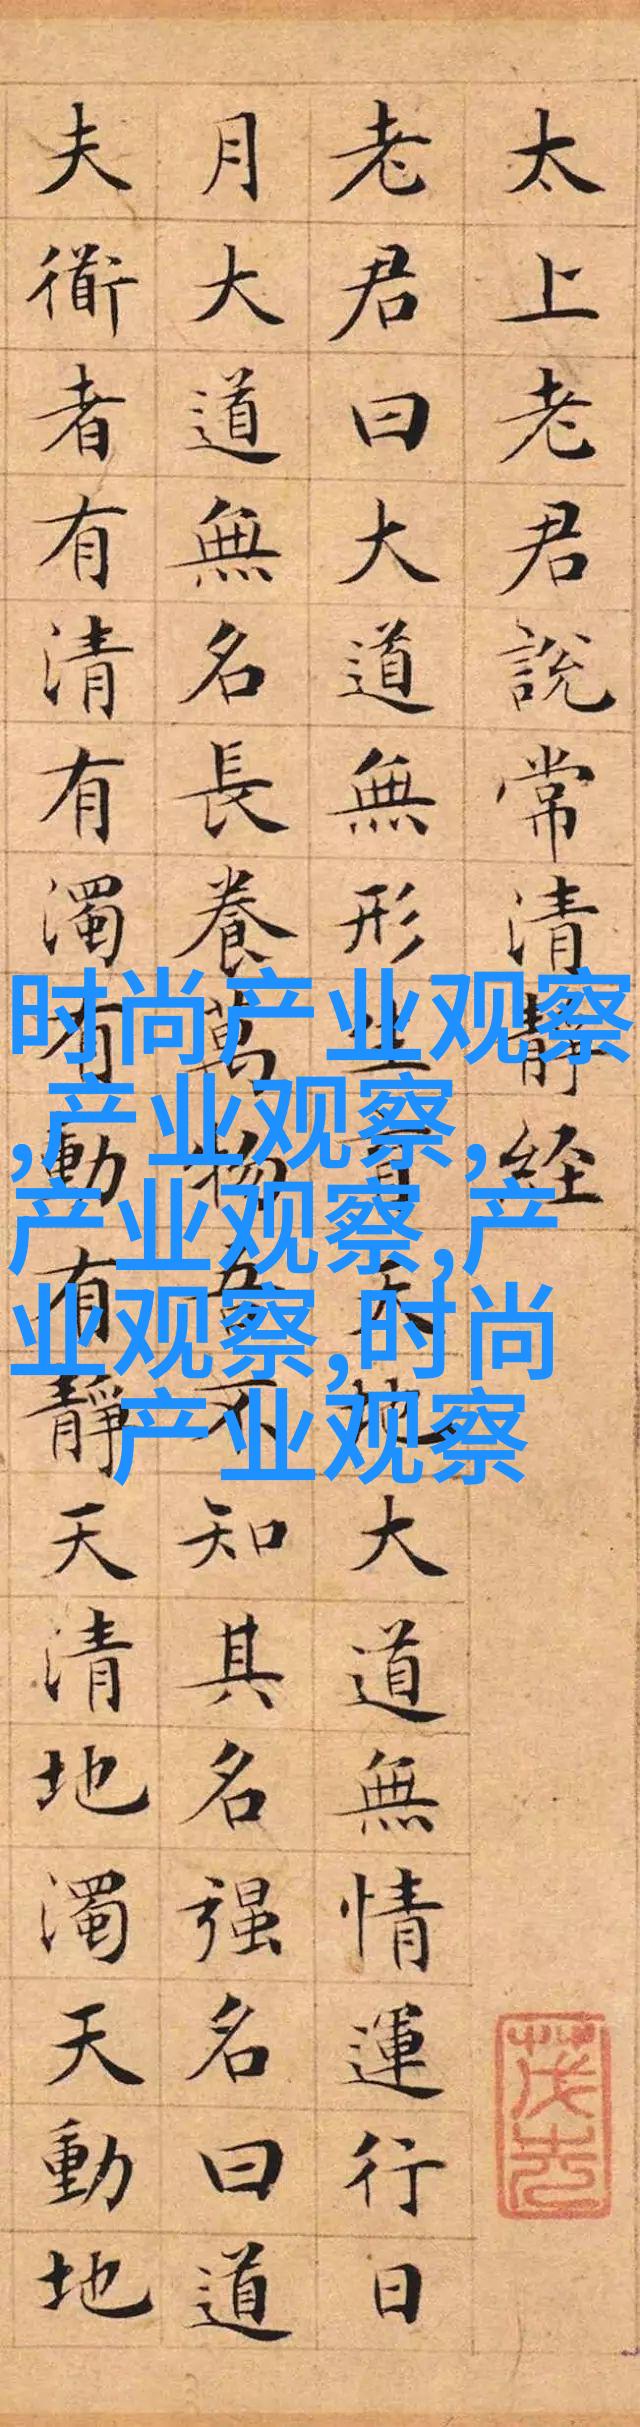 太上老君說常清靜経
老君曰大道無形生育天地大道無情運行日
月大道無名長養萬物吾不知其名强名曰道
夫衜者有清有濁有動有靜天清地濁天動地
时尚产业观察
,产业观察,
产业观察,产
业观察,时尚
产业观察